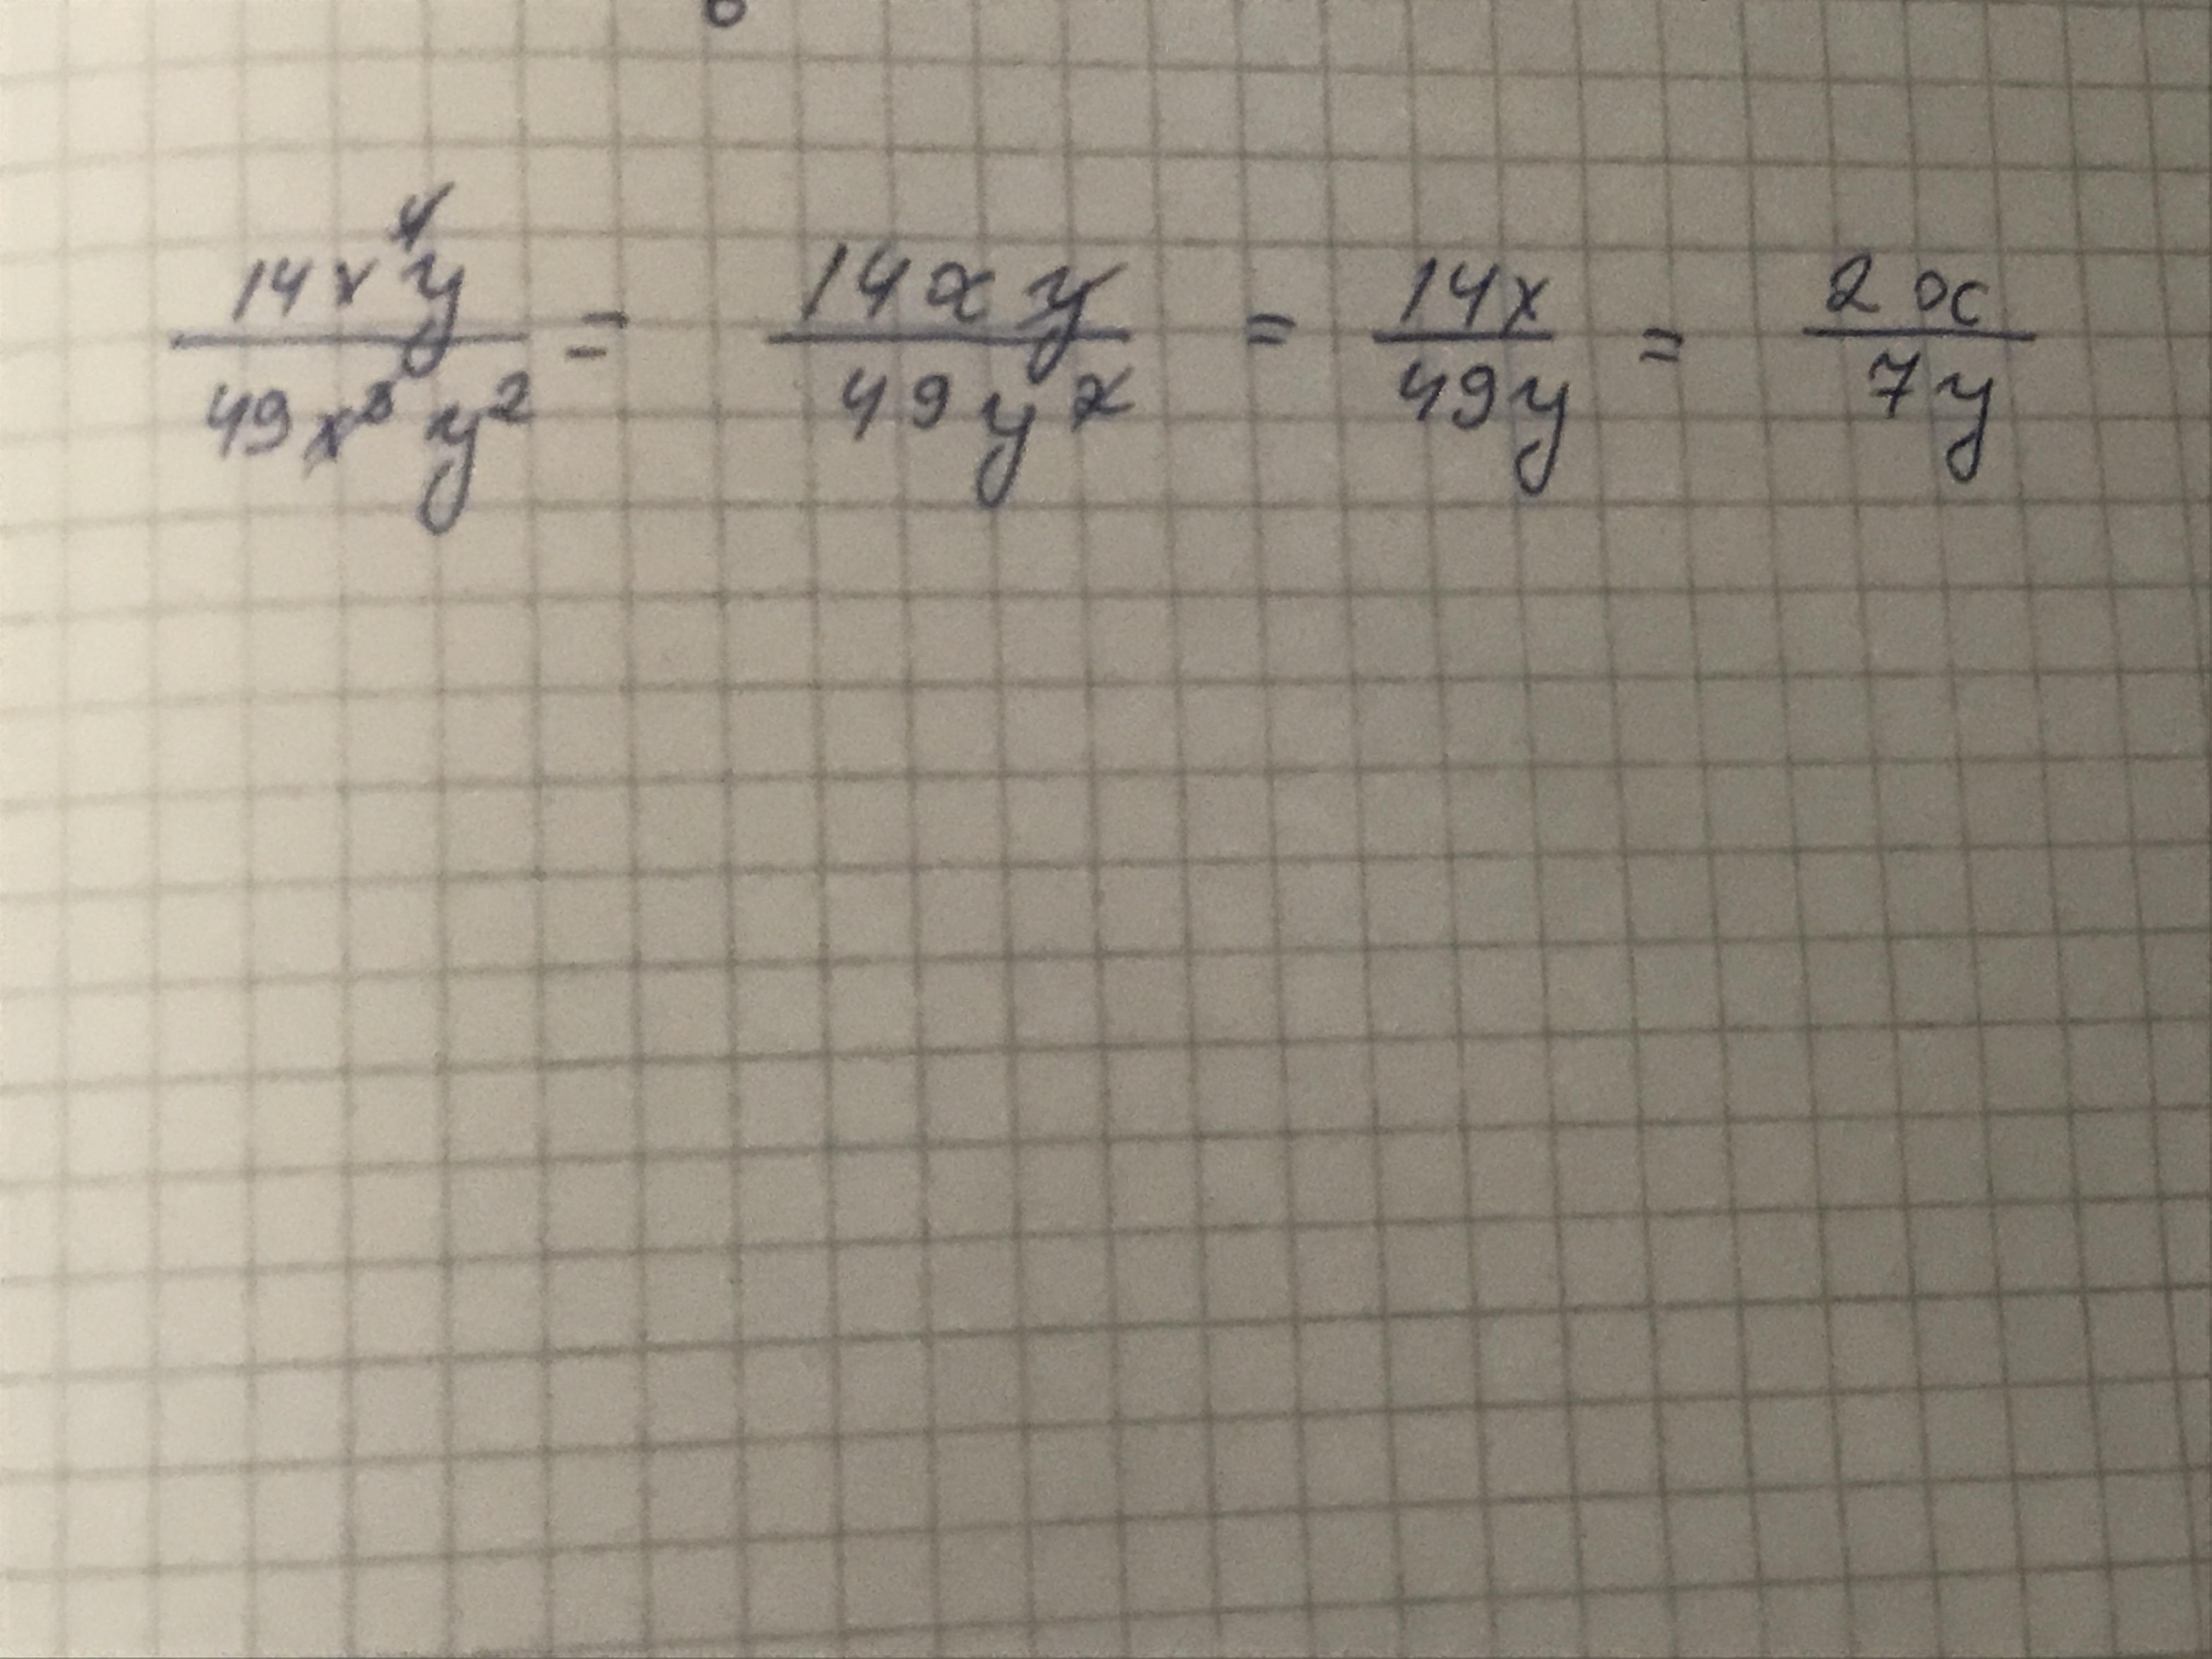 14x⁴y/49x³y² = 14xy/49yx = 14x/49y = 2x/7y